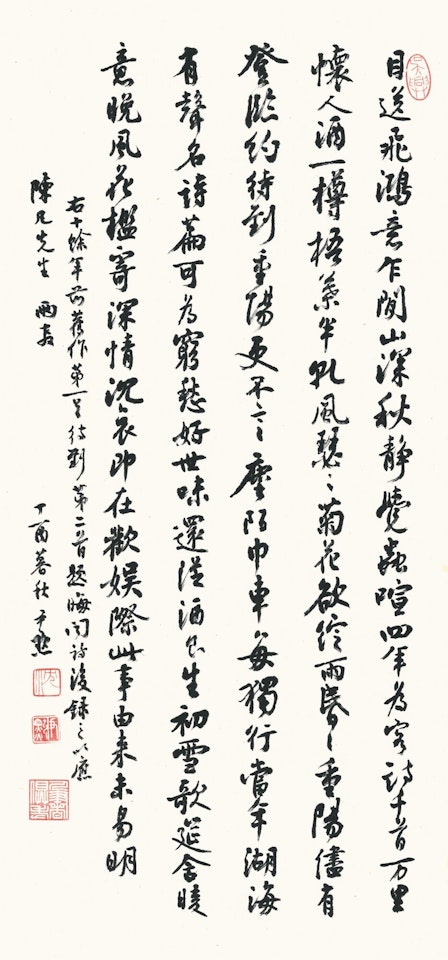 目送飛鴻意乍閒山深秋静覺蟲喧四年為客詩千首万里
懷人酒一樽梧葉半乱風瑟〻菊花欲綻雨昏〻重陽儘有
登臨約待到重陽更不言塵陌巾車每獨行當年湖海
有聲名詩篇可為窮愁好世味還從酒生初雪歌筵含
意晚風花槛寄深情沉哀即在歡娱際此事由来未易明
右十餘年前舊作第一首待到第二首題晦聞詩後録之以應
陳凡先生 教
丁酉暮秋 尹默